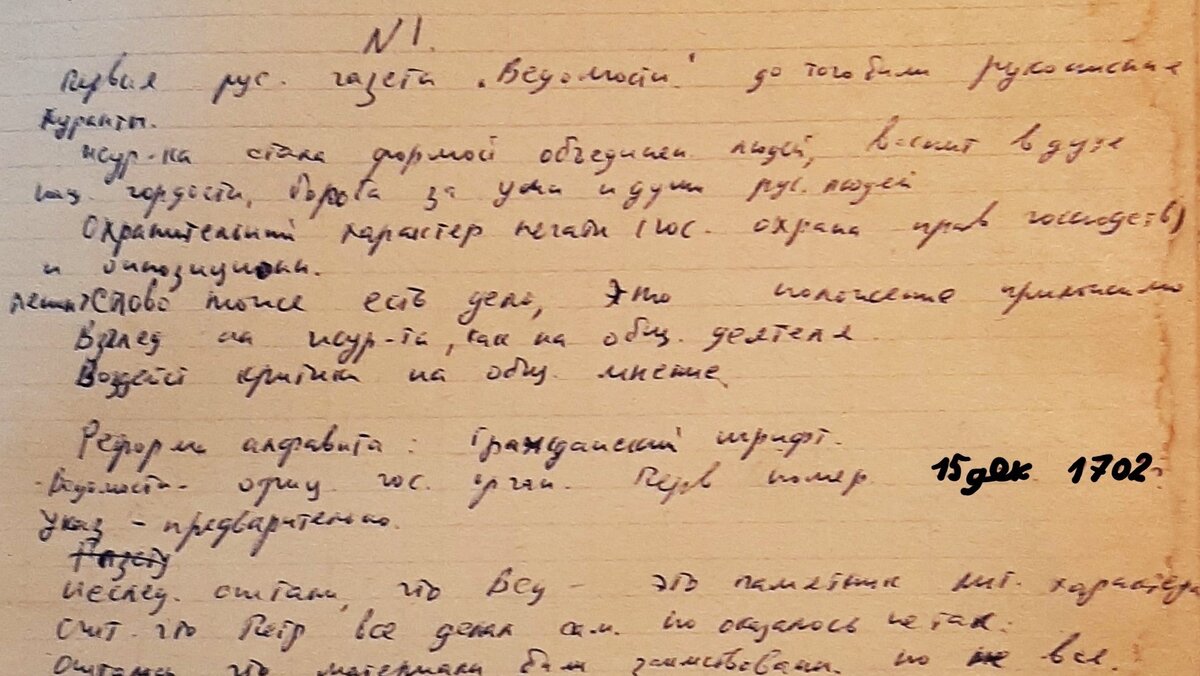 N 1.
Первая рус. газета „Ведомости“ до того были рукописные
Куранты.
Жур-ка стала формой объединен. людей, в духе
нац. гордости, борьба за умы и души рус. людей
Охранительный характер печати (гос. охрана прав господств)
и оппозицион.
Слово тоже есть дело, это положение применимо
Взгляд на жур-та, как на общ. деятеля.
Воздейст критики на общ. мнение
Реформа алфавита: Гражданский шрифт.
-Ведомости- офиц. гос. орган. Перв номер 15 дек 1702
Указ - предварительно.
Исслед. считали, что Вед - это памятник лит. характера
Счит. что Петр все делал сам. Но оказалось не так.
Считалось что материалы были заимствован. но не все.